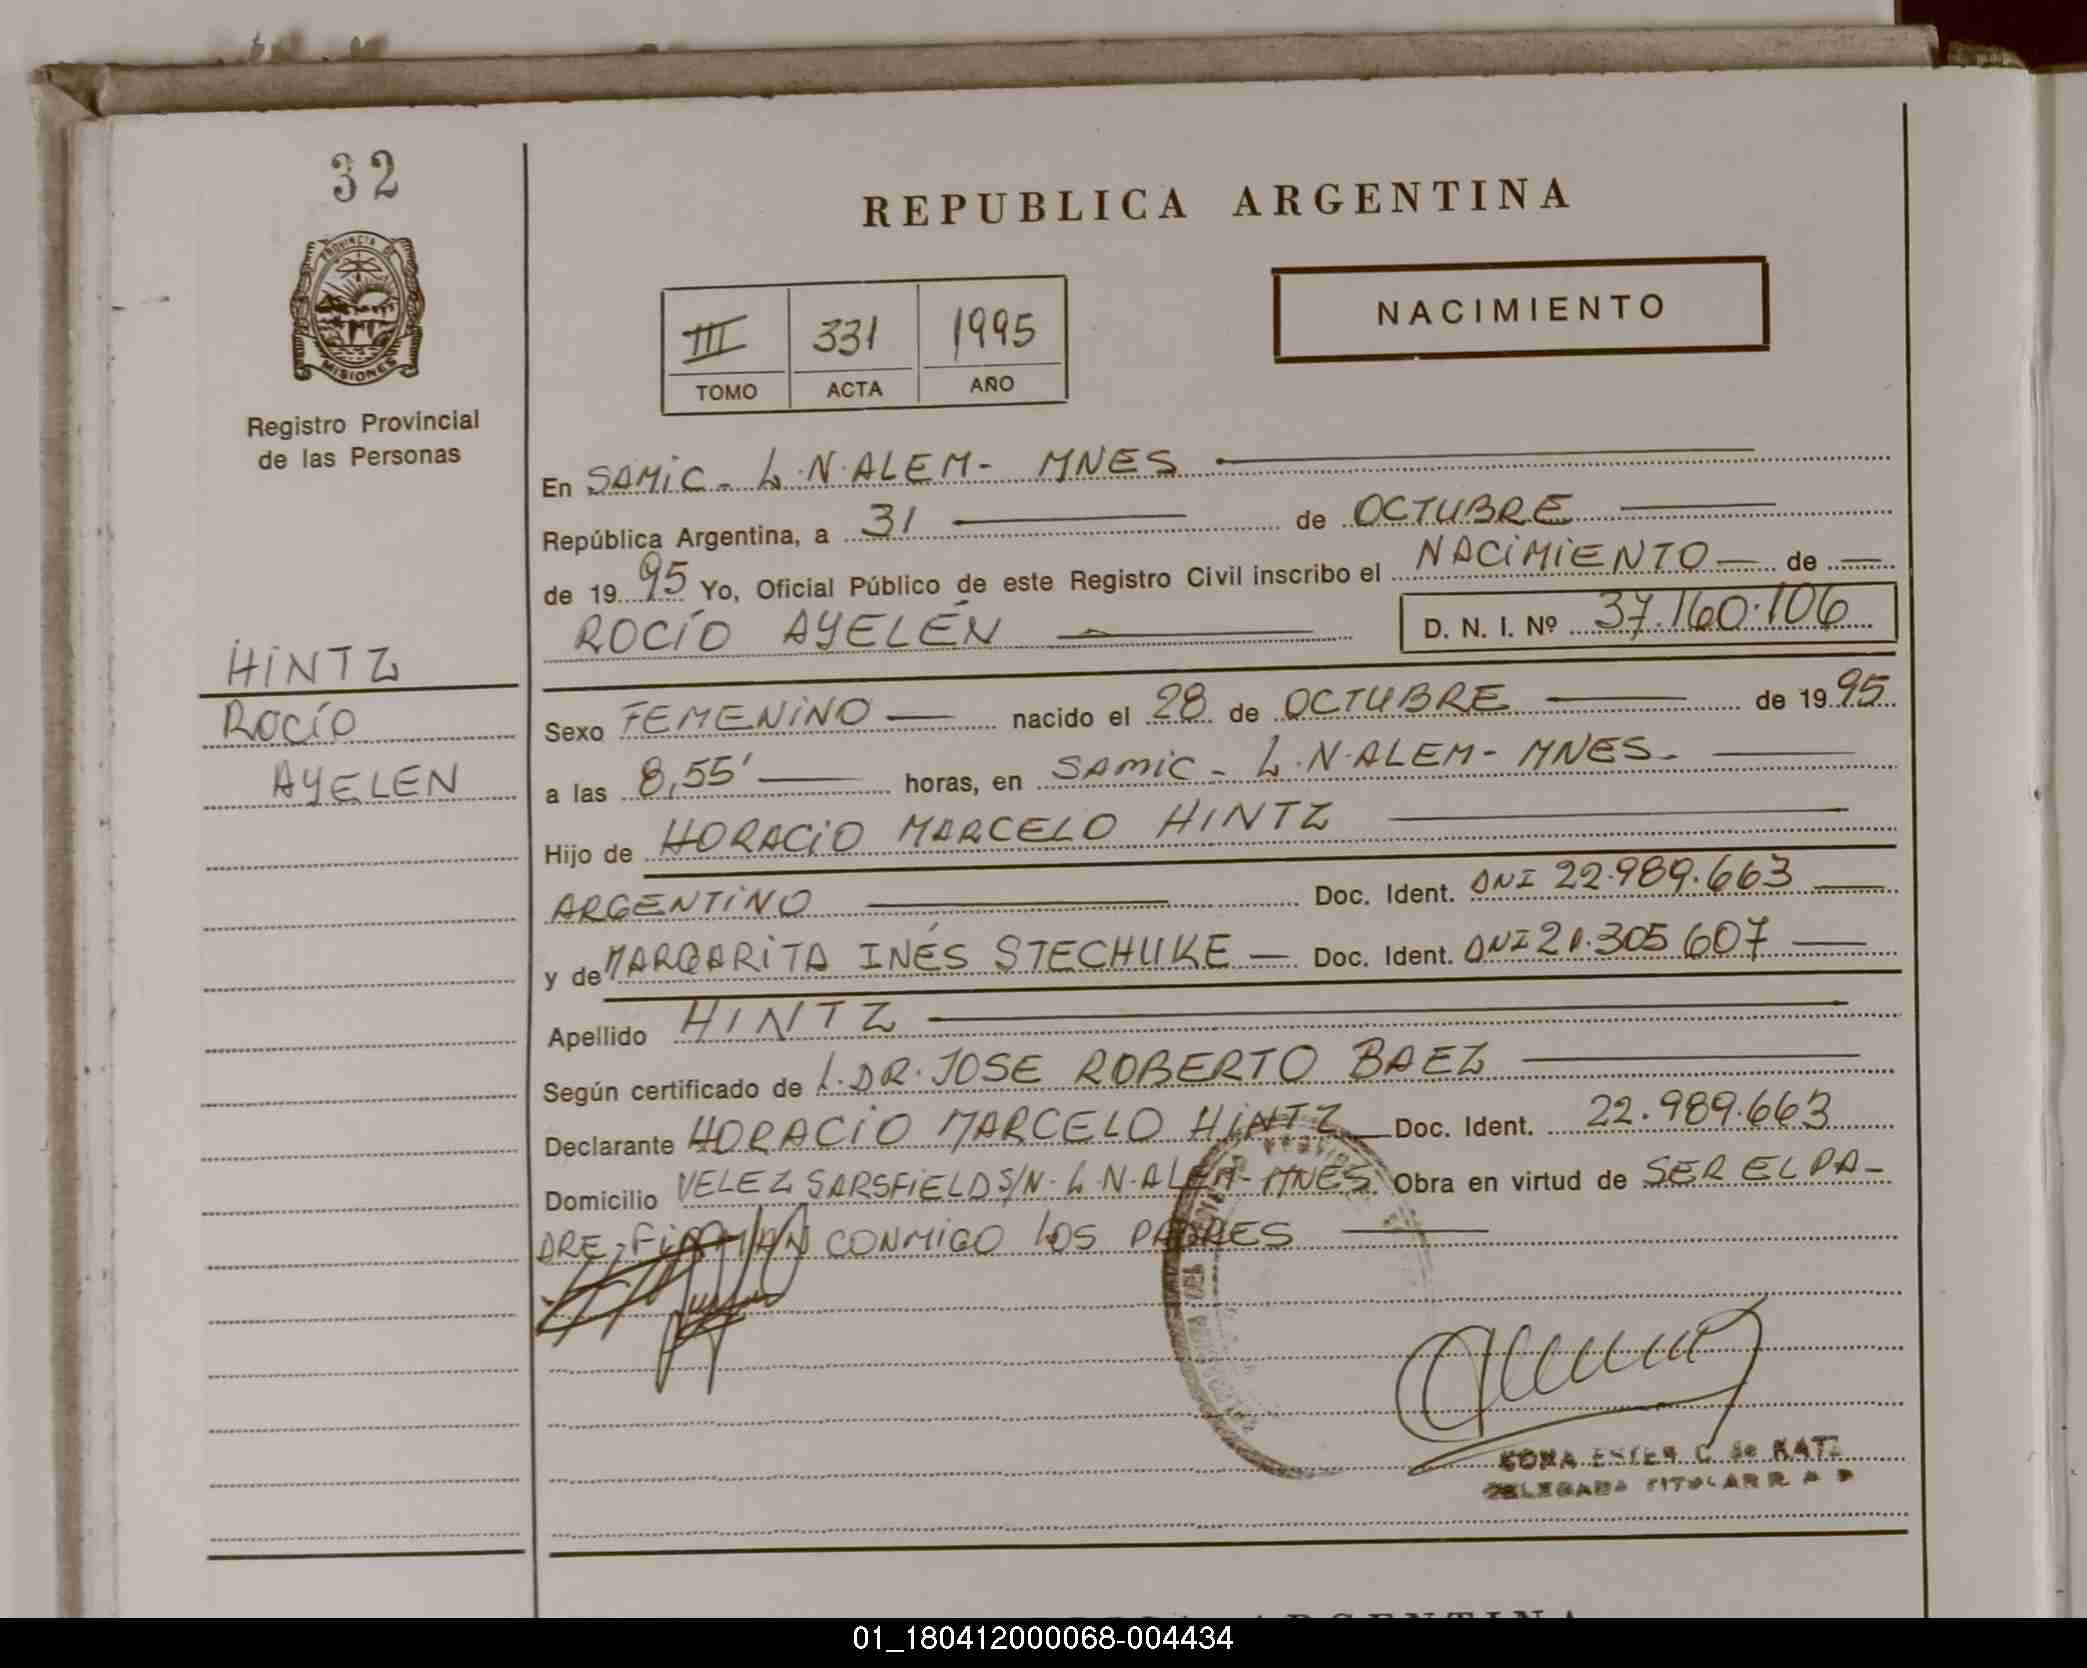 32
PROVINCIA DE
MISIONES
Registro Provincial
de las Personas
HINTZ
ROCÍO
AYELEN
REPUBLICA ARGENTINA
NACIMIENTO
III 331 1995
TOMO ACTA AÑO
En SAMIC - L.N. ALEM - MNES
República Argentina, a 31 de OCTUBRE
de 1995 Yo, Oficial Público de este Registro Civil inscribo el NACIMIENTO de
ROCÍO AYELÉN D. N. I. Nº 37.160.106
Sexo FEMENINO nacido el 28 de OCTUBRE de 1995
a las 8,55' horas, en SAMIC - L.N. ALEM - MNES -
Hijo de HORACIO MARCELO HINTZ
ARGENTINO Doc. Ident. DNI 22.989.663
y de MARGARITA INÉS STECHUKE Doc. Ident. DNI 21.305.607
Apellido HINTZ
Según certificado de L. DR. JOSE ROBERTO BAEZ
Declarante HORACIO MARCELO HINTZ Doc. Ident. 22.989.663
Domicilio VELEZ SARSFIELD S/N - L.N. ALEM - MNES Obra en virtud de SER EL PA-
DRE - FIRMAN CONMIGO LOS PADRES
ESTER C. de KATZ
DELEGADA TITULAR R P
01_180412000068-004434